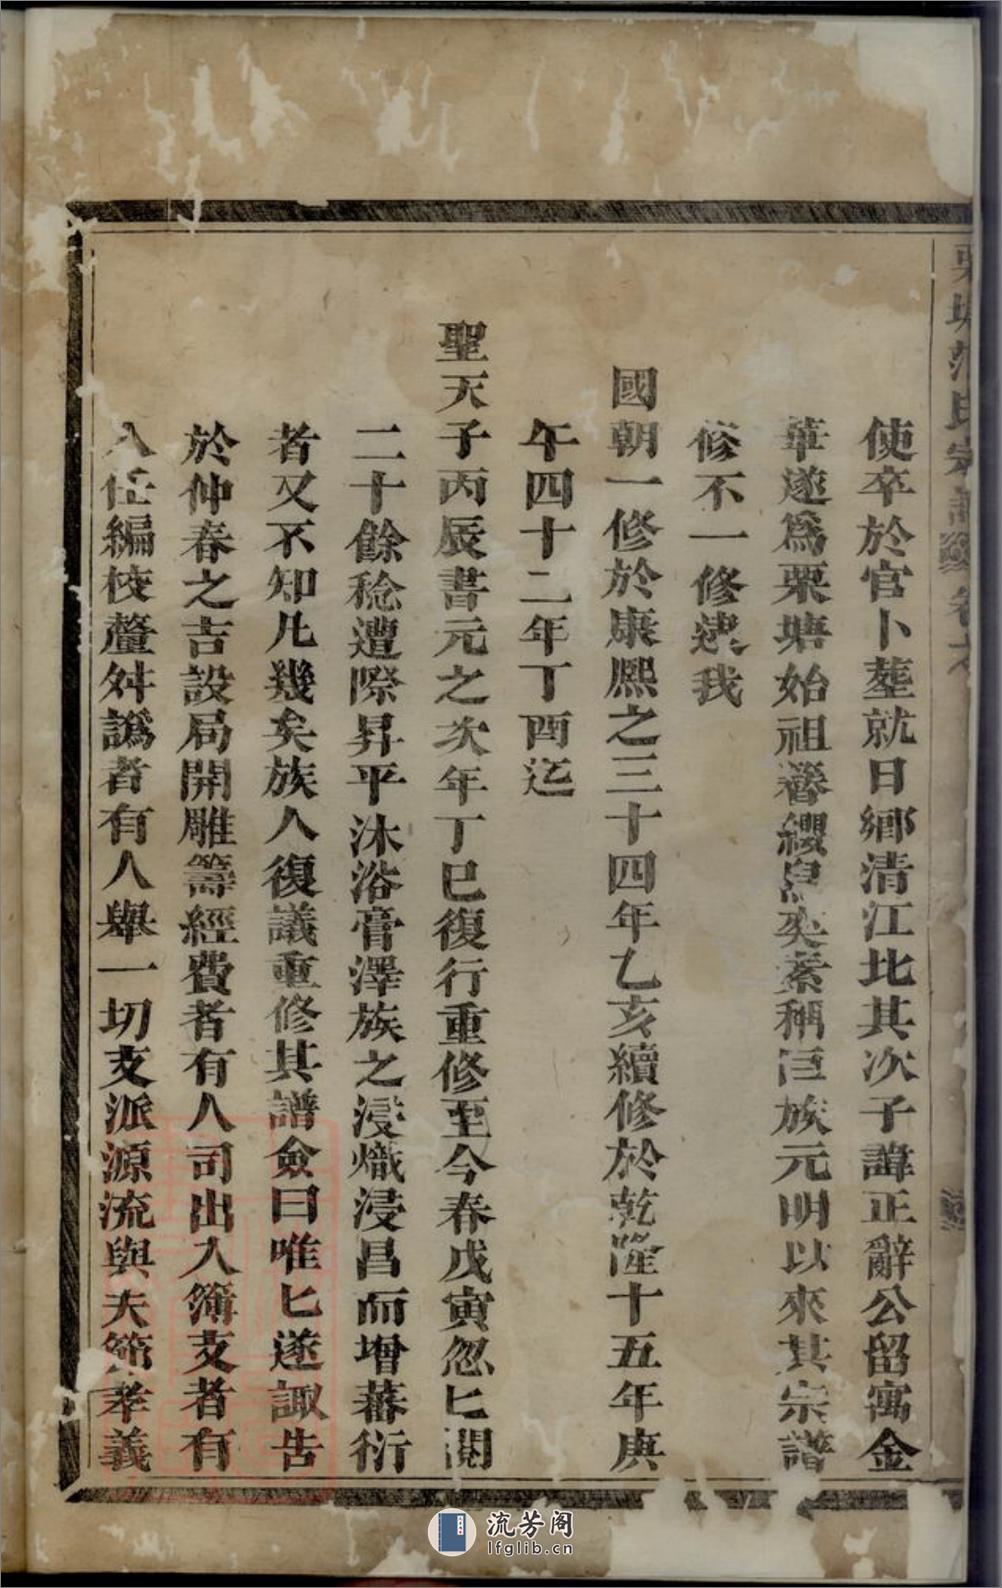 栗塘范氏宗譜 卷之
使卒於官卜塟就日鄉清江北其次子諱正辭公留寓金
華遂爲栗塘始祖簪纓奕素稱巨族元明以來其宗譜
修不一修逮我
國朝一修於康熙之三十四年乙亥續修於乾隆十五年庚
午四十二年丁酉迄
聖天子丙辰書元之次年丁巳復行重修至今春戊寅忽匕閱
二十餘稔遭際昇平沐浴膏澤族之浸熾浸昌而增蕃衍
者又不知凡幾矣族人復議重修其譜僉曰唯匕遂諏告
於仲春之吉設局開雕籌經費者有人司出入簿支者有
人任編校釐舛譌者有人舉一切支派源流與夫節孝義
流芳阁
lfglib.cn